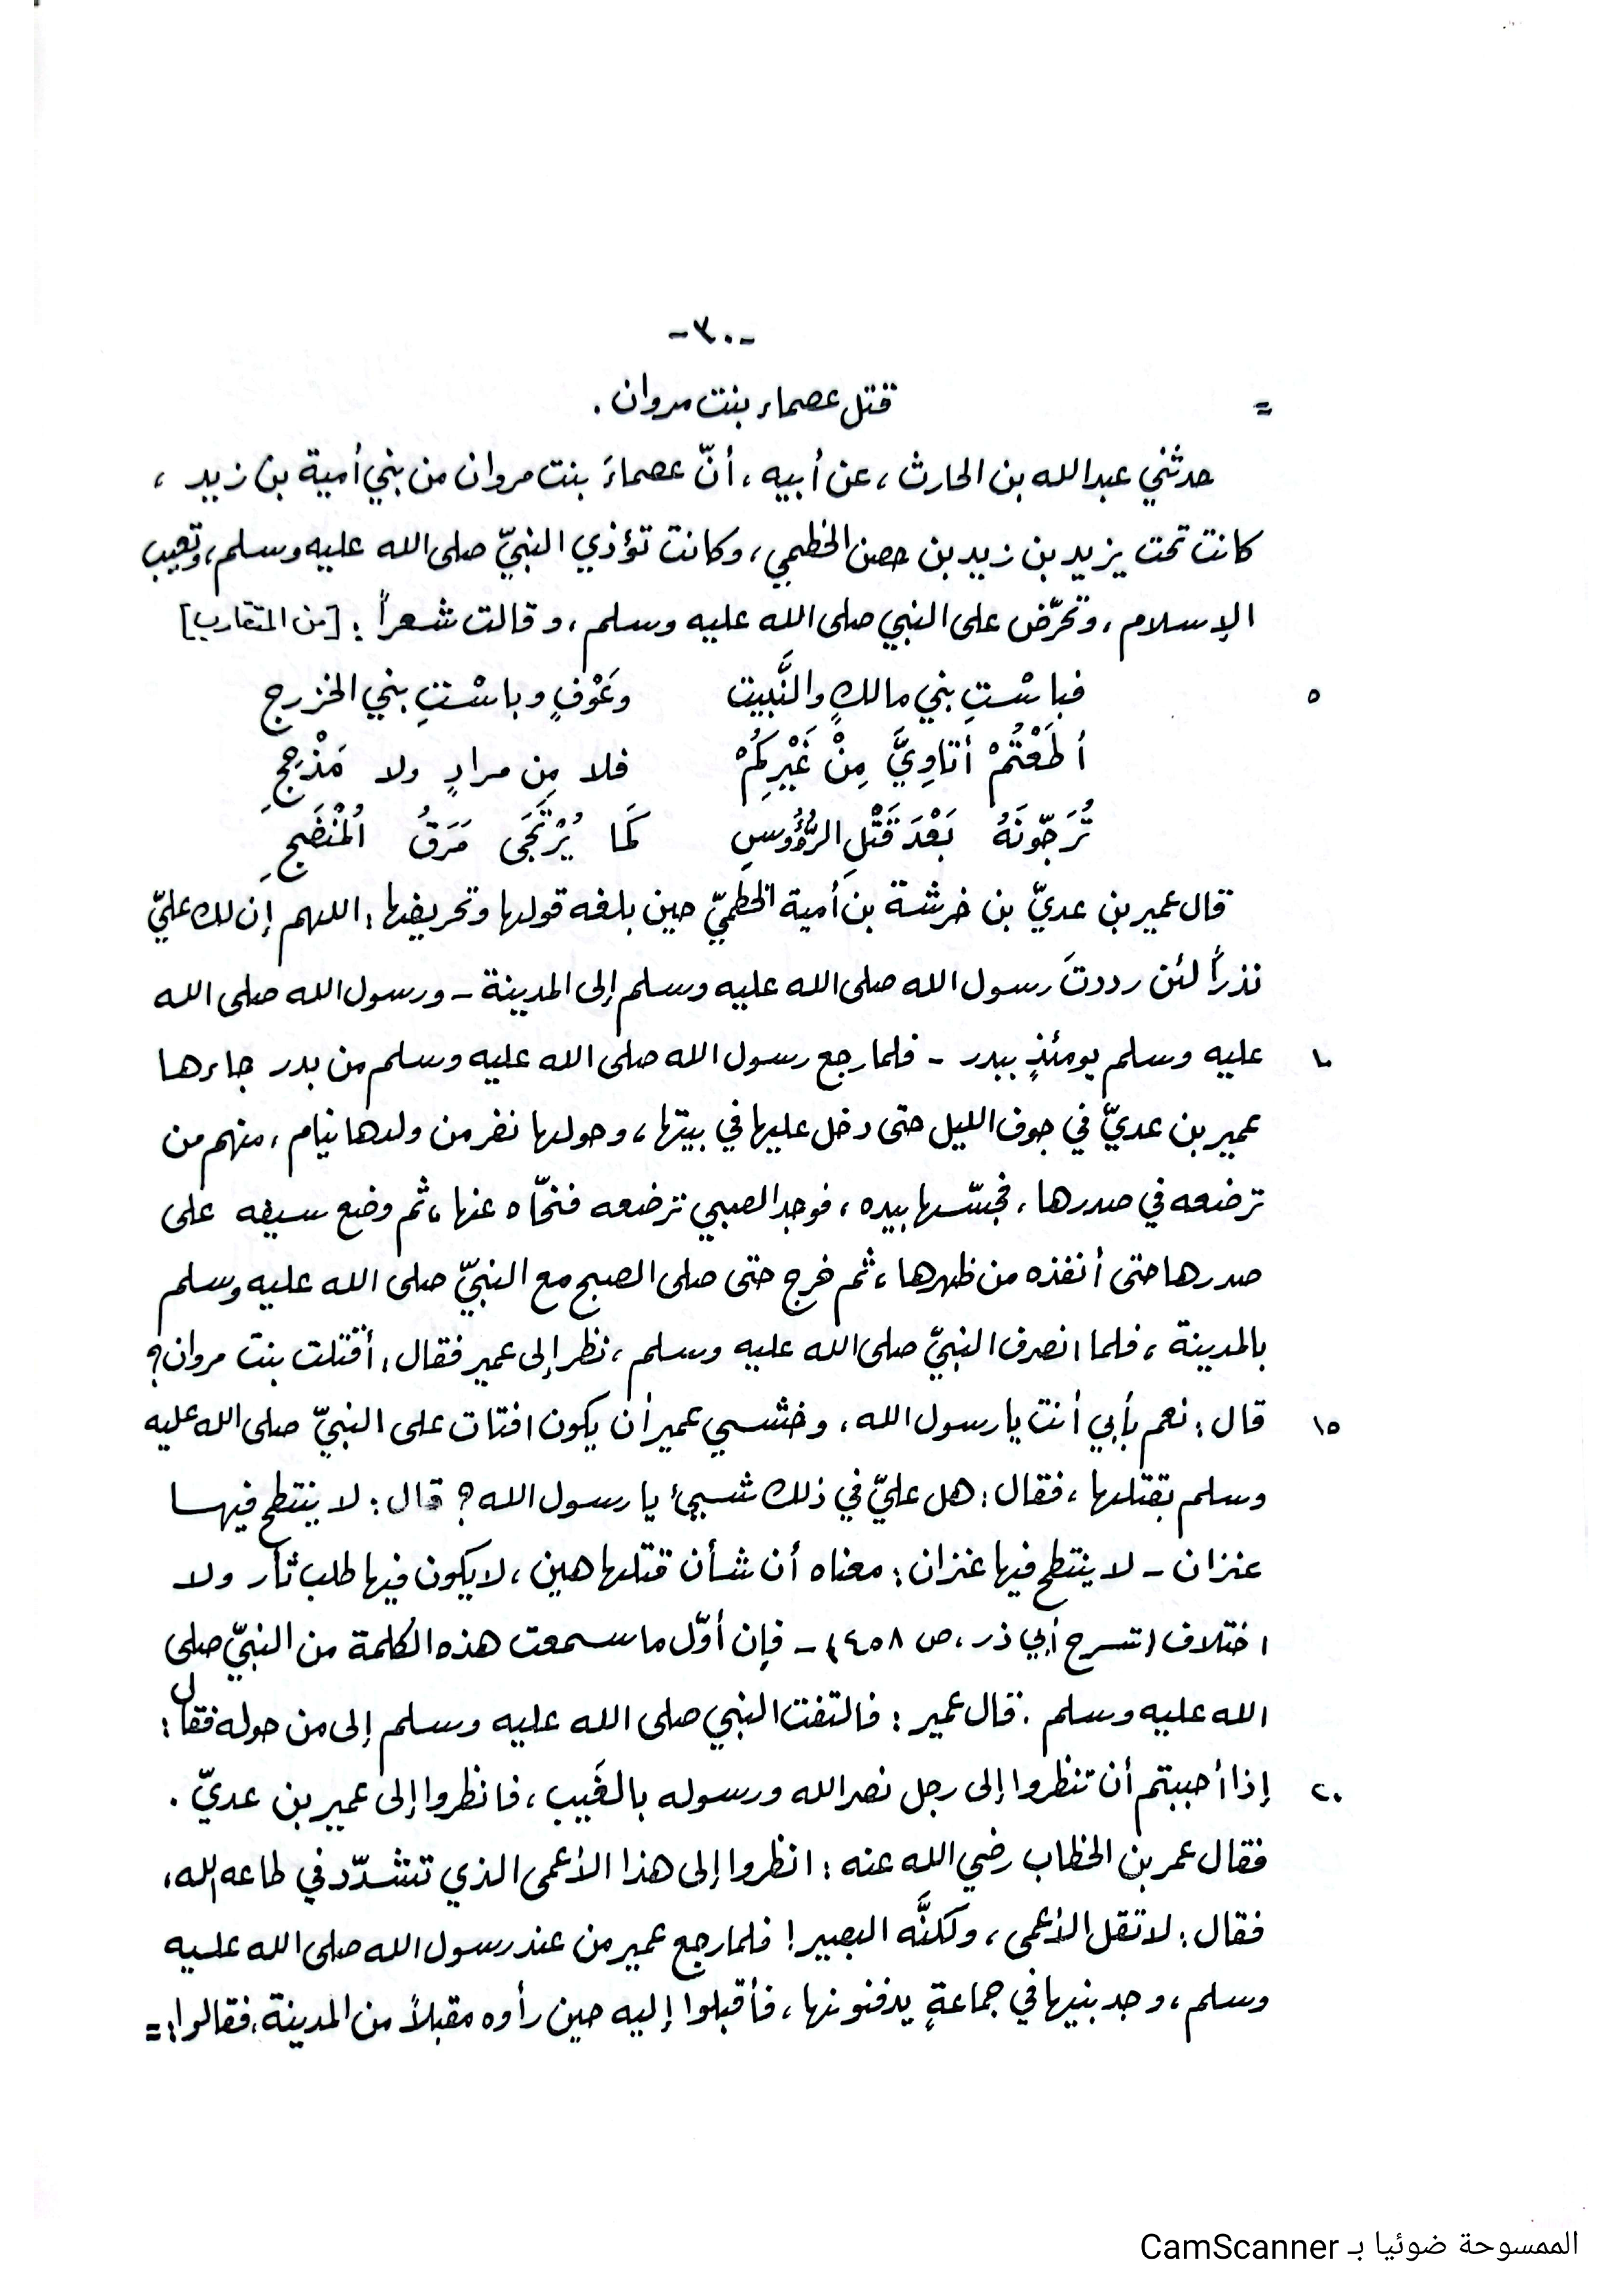 -٣٠-
= قتل عصماء بنت مروان .
حدثني عبدالله بن الحارث ، عن أبيه ، أنّ عصماءَ بنت مروان من بني أمية بن زيد ،
كانت تحت يزيد بن زيد بن حصن الخطمي ، وكانت تؤذي النبيّ صلى الله عليه وسلم ، وتعيب
الإسلام ، وتحرّض على النبي صلى الله عليه وسلم ، وقالت شعراً : [من المتقارب]
٥ فباسْتِ بني مالكٍ والنَّبيت وعَوْفٍ وباسْتِ بني الخزرج
أطَعْتُمْ أتاوِيَّ مِنْ غَيْرِكُمْ فلا مِن مرادٍ ولا مَذْحِجِ
تُرَجّونَهُ بَعْدَ قَتْلِ الرُّؤُوسِ كَما يُرْتَجَى مَرَقُ المُنْضَجِ
قال عمير بن عديّ بن خرشة بن أمية الخطميّ حين بلغه قولها وتحريضها : اللهم إن لك عليّ
نذراً لئن رددتَ رسول الله صلى الله عليه وسلم إلى المدينة - ورسول الله صلى الله
١٠ عليه وسلم يومئذٍ ببدر - فلما رجع رسول الله صلى الله عليه وسلم من بدر جاءها
عمير بن عديّ في جوف الليل حتى دخل عليها في بيتها ، وحولها نفر من ولدها نيام ، منهم من
ترضعه في صدرها ، فجسّها بيده ، فوجد الصبي ترضعه فنحّاه عنها ، ثم وضع سيفه على
صدرها حتى أنفذه من ظهرها ، ثم خرج حتى صلى الصبح مع النبيّ صلى الله عليه وسلم
بالمدينة ، فلما انصرف النبيّ صلى الله عليه وسلم ، نظر إلى عمير فقال : أقتلت بنت مروان ؟
١٥ قال : نعم بأبي أنت يا رسول الله ، وخشي عمير أن يكون افتات على النبيّ صلى الله عليه
وسلم بقتلها ، فقال : هل عليّ في ذلك شيئ يا رسول الله ؟ قال : لا ينتطح فيها
عنزان - لا ينتطح فيها عنزان : معناه أن شأن قتلها هين ، لا يكون فيها طلب ثأر ولا
اختلاف (شرح أبي ذر ، ص ٤٥٨) - فإن أوّل ما سمعت هذه الكلمة من النبيّ صلى
الله عليه وسلم . قال عمير : فالتفت النبي صلى الله عليه وسلم إلى من حوله فقال :
٢٠ إذا أحببتم أن تنظروا إلى رجل نصر الله ورسوله بالغَيب ، فانظروا إلى عمير بن عديّ .
فقال عمر بن الخطاب رضي الله عنه : انظروا إلى هذا الأعمى الذي تشدّد في طاعه لله ،
فقال : لا تقل الأعمى ، ولكنَّه البصير ! فلما رجع عمير من عند رسول الله صلى الله عليه
وسلم ، وجد بنيها في جماعةٍ يدفنونها ، فأقبلوا إليه حين رأوه مقبلاً من المدينة ، فقالوا : =
الممسوحة ضوئيا بـ CamScanner